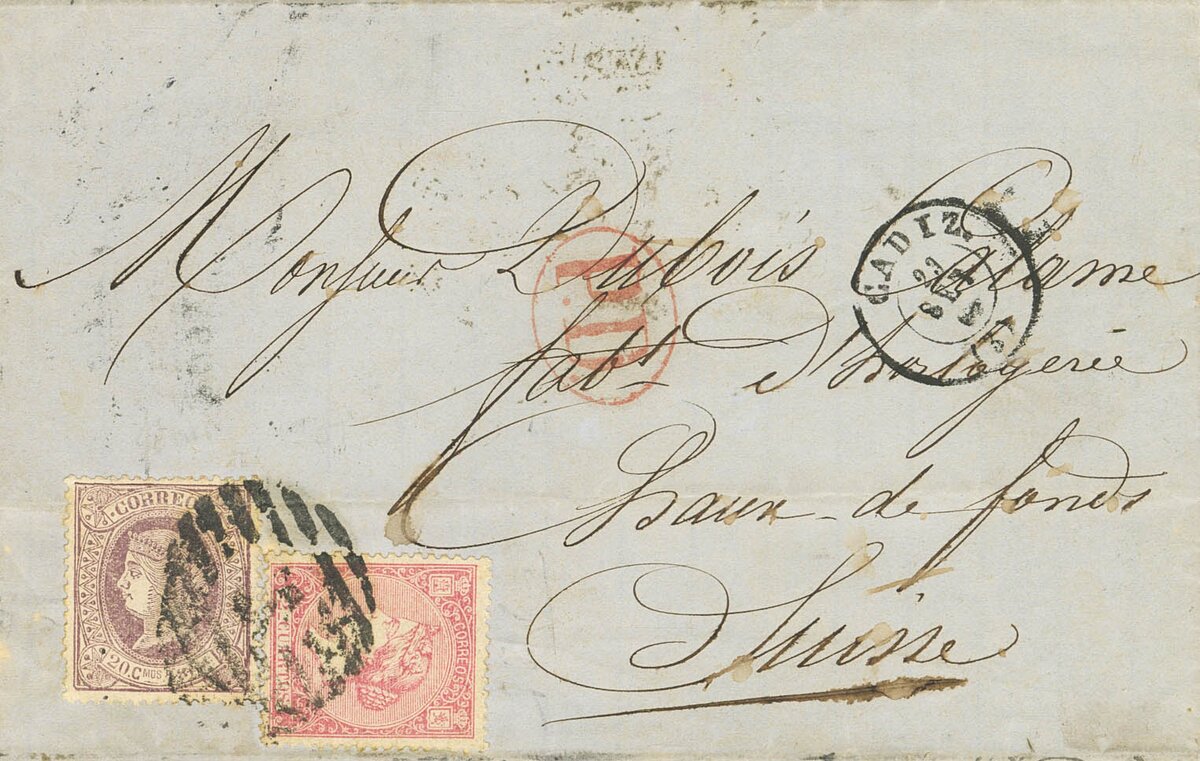 Monsieur Dubois Plame
fabt d'horlogerie
Chaux-de fonds
Suisse
P.D.
CADIZ.
CORREO
20. Cmos
CORREOS